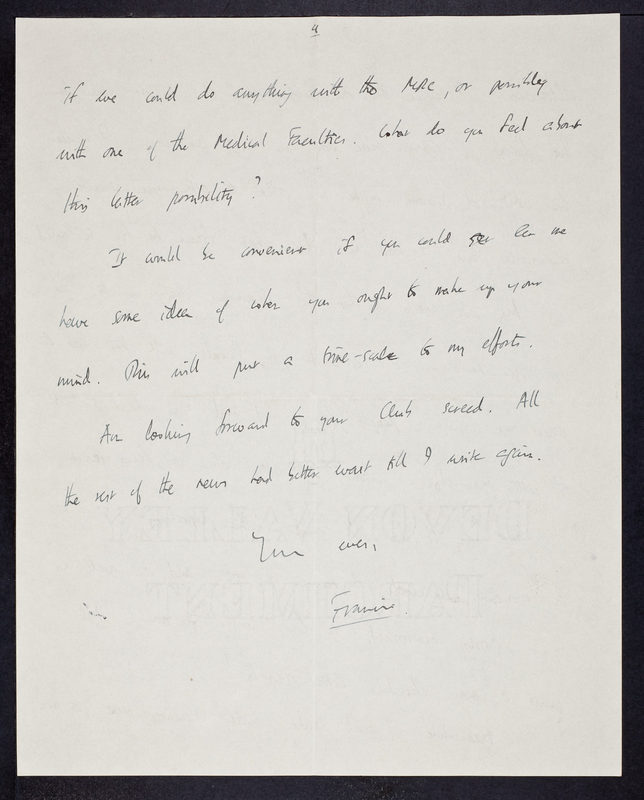 4
if we could do anything with the MRC, or possibly
with one of the Medical Faculties. What do you feel about
this latter possibility?
It would be convenient if you could let me
have some idea of when you ought to make up your
mind. This will put a time-scale to my efforts.
Am looking forward to your Club screed. All
the rest of the news had better wait till I write again.
Yours ever,
Francis.
DEVON VALLEY
PARCHMENT